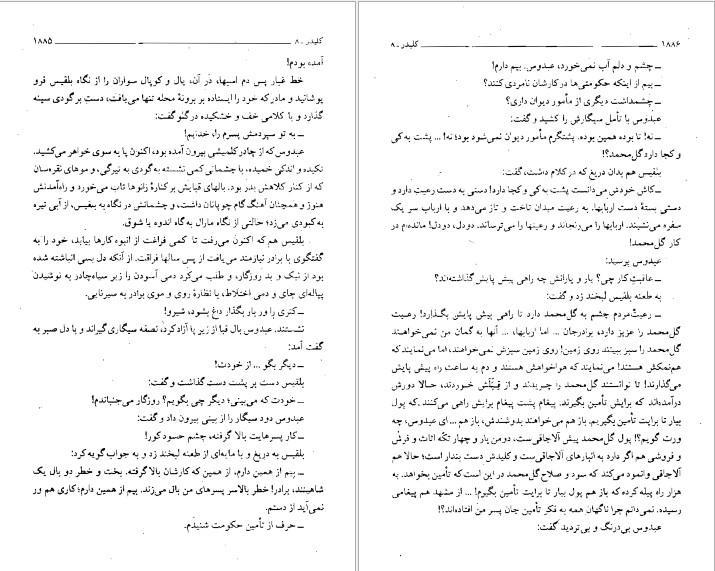 کلیدر ـ ۸ ۱۸۸۵
آمده بودم!
خط غبار پس دم اسبها، در آن، یال و کوپال سواران را از نگاه بلقیس فرو
پوشانید و مادر که خود را ایستاده بر برونهٔ محله تنها می‌یافت، دست بر گودی سینه
گذارد و با کلامی خف و خشکیده در گلو گفت:
ـ به تو سپردمش پسرم را، خدایم!
عبدوس که از چادر کلمیشی بیرون آمده بود، اکنون پا به سوی خواهر می‌کشید.
تکیده و اندکی خمیده، با چشمانی کمی نشسته به گودی به تیرگی، و موهای نقره‌سان
که از کنار کلاهش بدر بود. بالهای قبایش بر کنارهٔ زانوها تاب می‌خورد و راه‌آمدنش
هنوز و همچنان آهنگ گام چوپانان داشت، و چشمانش در نگاه به بلقیس، از آبی تیره
به کبودی می‌زد؛ حالتی از نگاه مارال به گاه اندوه یا شوق.
بلقیس هم که اکنون می‌رفت تا کمی فراغت از انبوه کارها بیابد، خود را به
گفتگوی با برادر نیازمند می‌یافت از پس سالها فراقت. از آنکه دل بسی انباشته شده
بود از نیک و بد روزگار، و طلب می‌کرد دمی آسودن را زیر سیاه‌چادر به نوشیدن
پیاله‌ای چای و دمی اختلاط، با نظارهٔ روی و موی برادر به سیرنایی.
ـ کتری را ور بار بگذار داغ بشود، شیرو!
نشستند. عبدوس بال قبا از زیر پا آزاد کرد، نصفه سیگاری گیراند و با دل صبر به
گفت آمد:
ـ دیگر بگو ... از خودت!
بلقیس دست بر پشت دست گذاشت و گفت:
ـ خودت که می‌بینی؛ دیگر چی بگویم؟ روزگار می‌جنباندم!
عبدوس دود سیگار را از بینی بیرون داد و گفت:
ـ کار پسرهایت بالا گرفته، چشم حسود کور!
بلقیس به دریغ و با مایه‌ای از طعنه لبخند زد و به جواب گویه کرد:
ـ بیم از همین دارم، از همین که کارشان بالا گرفته. بخت و خطر دو بال یک
شاهینند، برادر! خطر بالاسر پسرهای من بال می‌زند. بیم از همین دارم؛ کاری هم ور
نمی‌آید از دستم.
ـ حرف از تأمین حکومت شنیدم.
۱۸۸۶ کلیدر ـ ۸
ـ چشم و دلم آب نمی‌خورد، عبدوس. بیم دارم!
ـ بیم از اینکه حکومتی‌ها در کارشان نامردی کنند؟
ـ چشمداشت دیگری از مأمور دیوان داری؟
عبدوس با تأمل سیگارش را کشید و گفت:
ـ نه! تا بوده همین بوده. پشتگرم مأمور دیوان نمی‌شود بود؛ نه! ... پشت به کی
و کجا دارد گل‌محمد؟!
بلقیس هم بدان دریغ که در کلام داشت، گفت:
ـ کاش خودش می‌دانست پشت به کی و کجا دارد! دستی به دست رعیت دارد و
دستی بستهٔ دست اربابها. به رعیت میدان تاخت و تاز می‌دهد و با ارباب سر یک
سفره می‌نشیند. اربابها را می‌رنجاند و رعیتها را می‌ترساند. دودل، دودل! مانده‌ام در
کار گل‌محمد!
عبدوس پرسید:
ـ عاقبتِ کار چی؟ یار و یارانش چه راهی پیش پایش گذاشته‌اند؟
به طعنه بلقیس لبخند زد و گفت:
ـ رعیت‌مردم چشم به گل‌محمد دارد تا راهی پیش پایش بگذارد! رعیت
گل‌محمد را عزیز دارد، برادرجان ... اما اربابها، ... آنها به گمان من نمی‌خواهند
گل‌محمد را سبز ببینند روی زمین! روی زمین سبزش نمی‌خواهند، اما می‌نمایند که
هم‌نمکش هستند! می‌نمایند که هواخواهش هستند و دم به ساعت راه پیش پایش
می‌گذارند! تا توانستند گل‌محمد را چریدند و از قِبَلَش خوردند، حالا دورش
درآمده‌اند که برایش تأمین بگیرند. پیغام پشت پیغام برایش راهی می‌کنند. که پول
بیار تا برایت تأمین بگیریم. باز هم می‌خواهند بدوشندش، باز هم ... ای عبدوس، چه
ورت گویم؟! پول گل‌محمد پیش آلاجاقی‌ست، دو من بار و چهار تکه اثاث و فرش
و فروشی هم اگر دارد به انبارهای آلاجاقی‌ست و کلیدش دست بندار است؛ حالا هم
آلاجاقی وانمود می‌کند که سود و صلاح گل‌محمد در این است که تأمین بخواهد. به
هزار راه پیله کرده که باز هم پول بیار تا برایت تأمین بگیرم! ... از مشهد هم پیغامی
رسیده. نمی‌دانم چرا ناگهان همه به فکر تأمین جان پسر من افتاده‌اند؟!
عبدوس بی‌درنگ و بی‌تردید گفت: